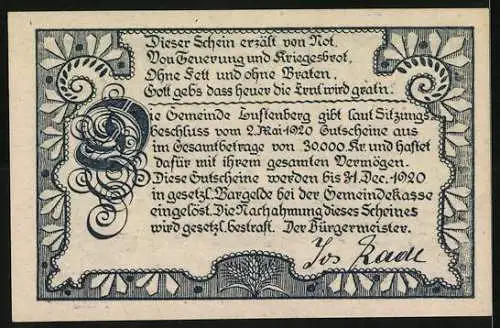 Dieser Schein erzält von Not,
Von Teuerung und Kriegesbrot,
Ohne Fett und ohne Braten,
Gott gebs dass heuer die Ernt wird gratn.
Die Gemeinde Luftenberg gibt laut Sitzungs
beschluss vom 2. Mai 1920 Gutscheine aus
im Gesamtbetrage von 30.000 Kr. und haftet
dafür mit ihrem gesamten Vermögen.
Diese Gutscheine werden bis 31. Dec. 1920
in gesetzl. Bargelde bei der Gemeindekasse
eingelöst. Die Nachahmung dieses Scheines
wird gesetzl. bestraft. Der Bürgermeister.
Jos